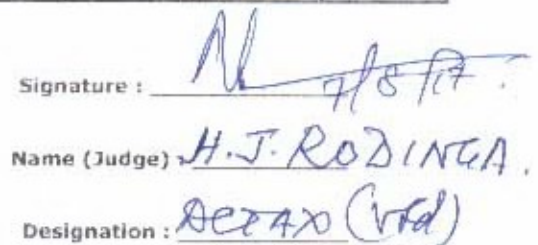 Signature : 7/8/17.
Name (Judge) H.J. RODINGA.
Designation :